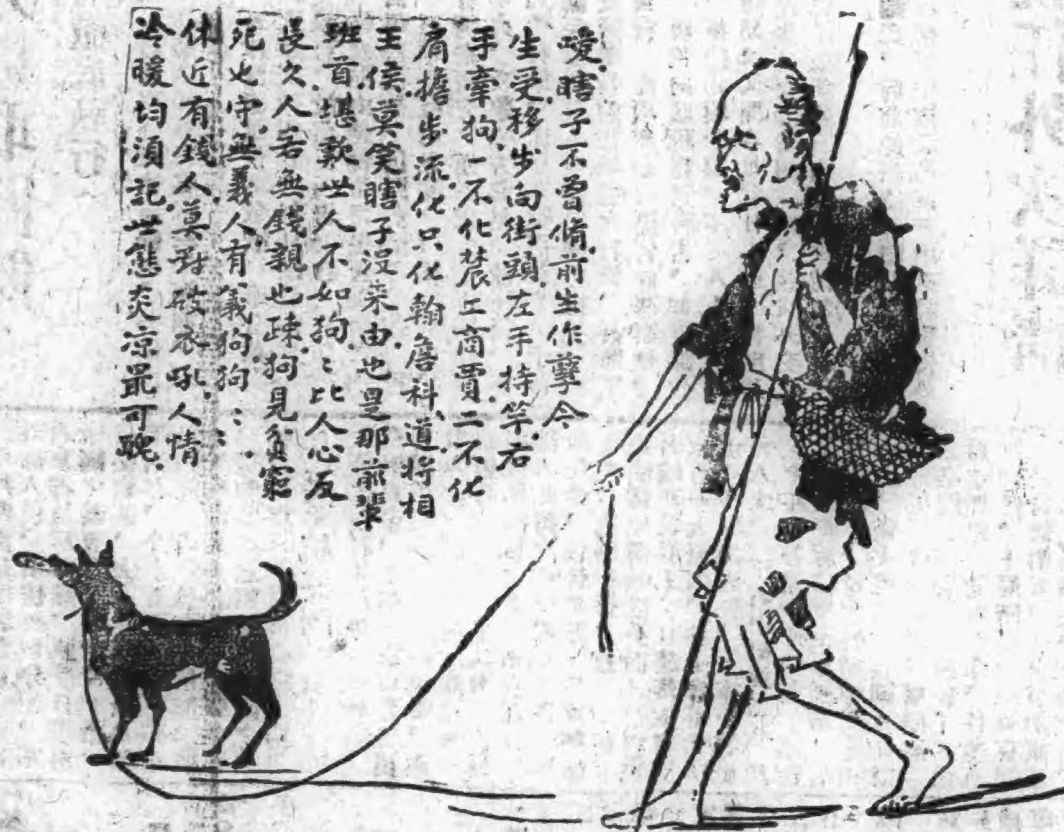 嗳.瞎子不曾脩.前生作孽今
生受.移步向街頭.左手持竿右
手牽狗.一不化農工商賈.二不化
肩擔步流.化只化翰詹科道.將相
王侯.莫笑瞎子没来由.也是那前輩
班首.堪歎世人不如狗.〻比人心反
長久.人若無錢親也疎.狗見貧窮
死也守.無義人.有義狗.狗〻〻.
休近有錢人.莫對破衣吼.人情
冷暖均須記.世態炎凉最可醜.